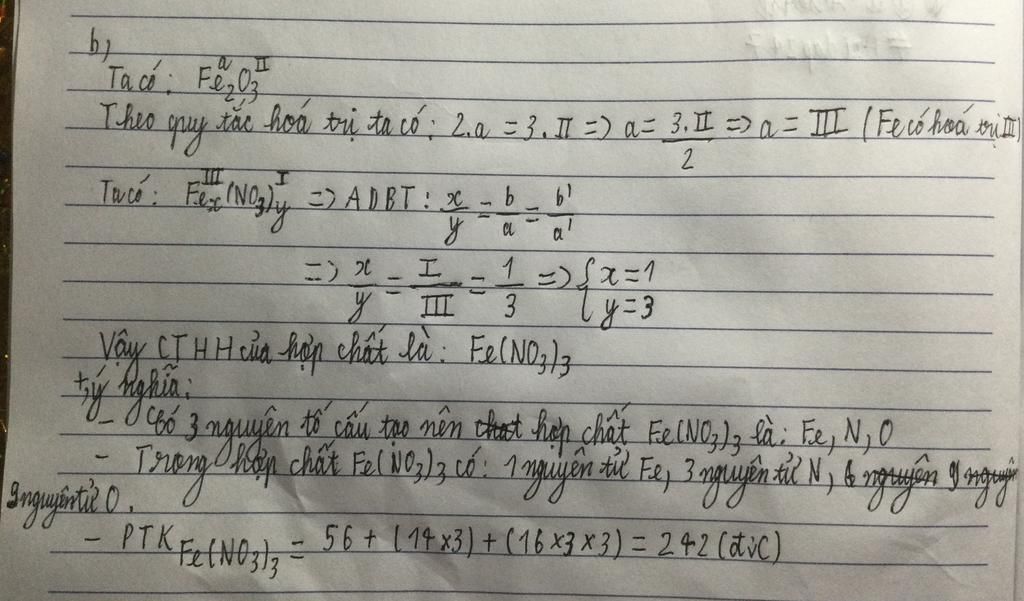 b,
Ta có: Fe₂ᵃO₃ᴵᴵ
Theo quy tắc hoá trị ta có: 2.a = 3.II => a = 3.II/2 => a = III (Fe có hoá trị III)
Ta có: Feₓᴵᴵᴵ(NO₃)ᵧᴵ => ADBT: x/y = b/a = b'/a'
=> x/y = I/III = 1/3 => { x = 1 y = 3
Vậy CTHH của hợp chất là: Fe(NO₃)₃
+, ý nghĩa:
- Có 3 nguyên tố cấu tạo nên chat hợp chất Fe(NO₃)₃ là: Fe, N, O
- Trong hợp chất Fe(NO₃)₃ có: 1 nguyên tử Fe, 3 nguyên tử N, 6 nguyên 9 nguyên
9 nguyên tử O.
- PTK Fe(NO₃)₃ = 56 + (14×3) + (16×3×3) = 242 (đvC)